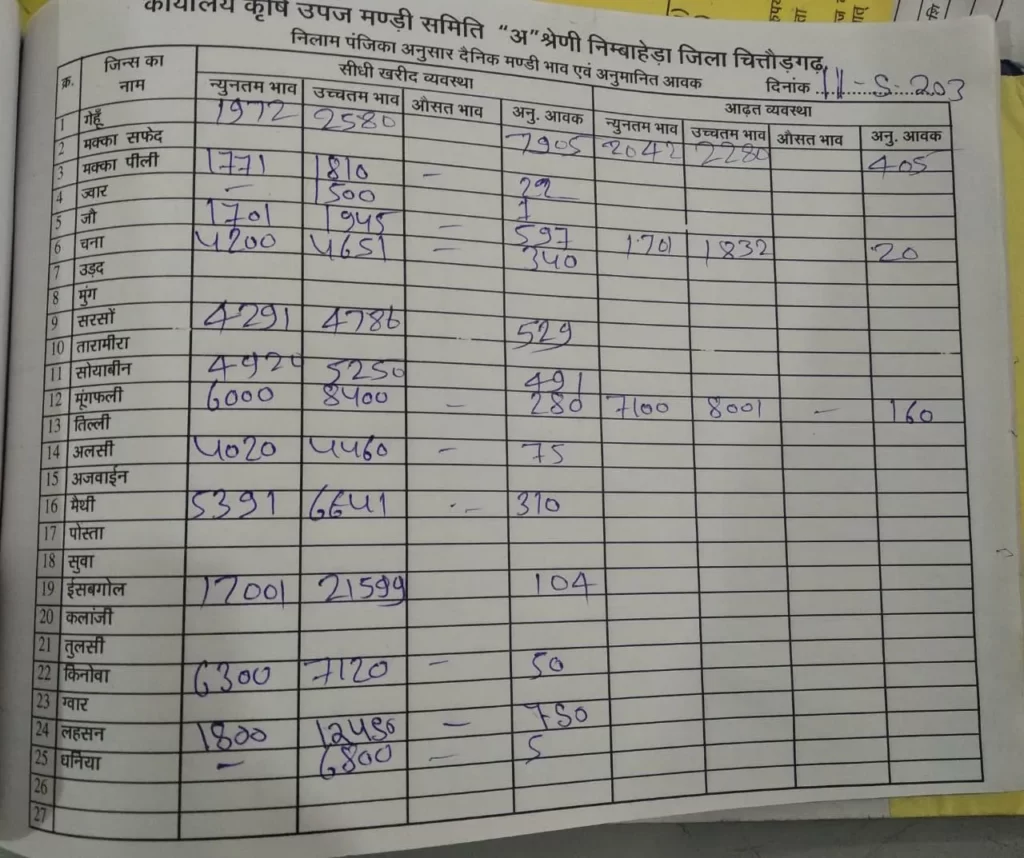 कार्यालय कृषि उपज मण्डी समिति "अ" श्रेणी निम्बाहेड़ा जिला चित्तौड़गढ़
निलाम पंजिका अनुसार दैनिक मण्डी भाव एवं अनुमानित आवक दिनांक 11-5-203
क्र. जिन्स का नाम सीधी खरीद व्यवस्था आढ़त व्यवस्था
न्युनतम भाव उच्चतम भाव औसत भाव अनु. आवक न्युनतम भाव उच्चतम भाव औसत भाव अनु. आवक
1 गेहूँ 1972 2580 7905 2042 2280 405
2 मक्का सफेद
3 मक्का पीली 1771 1810 - 22
4 ज्वार - 1500 1
5 जौ 1701 1945 - 597 1701 1832 20
6 चना 4200 4651 - 340
7 उड़द
8 मुंग
9 सरसों 4291 4786 529
10 तारामीरा
11 सोयाबीन 4920 5250 491
12 मूंगफली 6000 8400 - 280 7100 8001 - 160
13 तिल्ली
14 अलसी 4020 4460 - 75
15 अजवाईन
16 मैथी 5391 6641 - 310
17 पोस्ता
18 सुवा
19 ईसबगोल 17001 21599 104
20 कलांजी
21 तुलसी
22 किनोवा 6300 7120 - 50
23 ग्वार
24 लहसन 1800 12450 - 750
25 धनिया - 6800 - 5
26
27